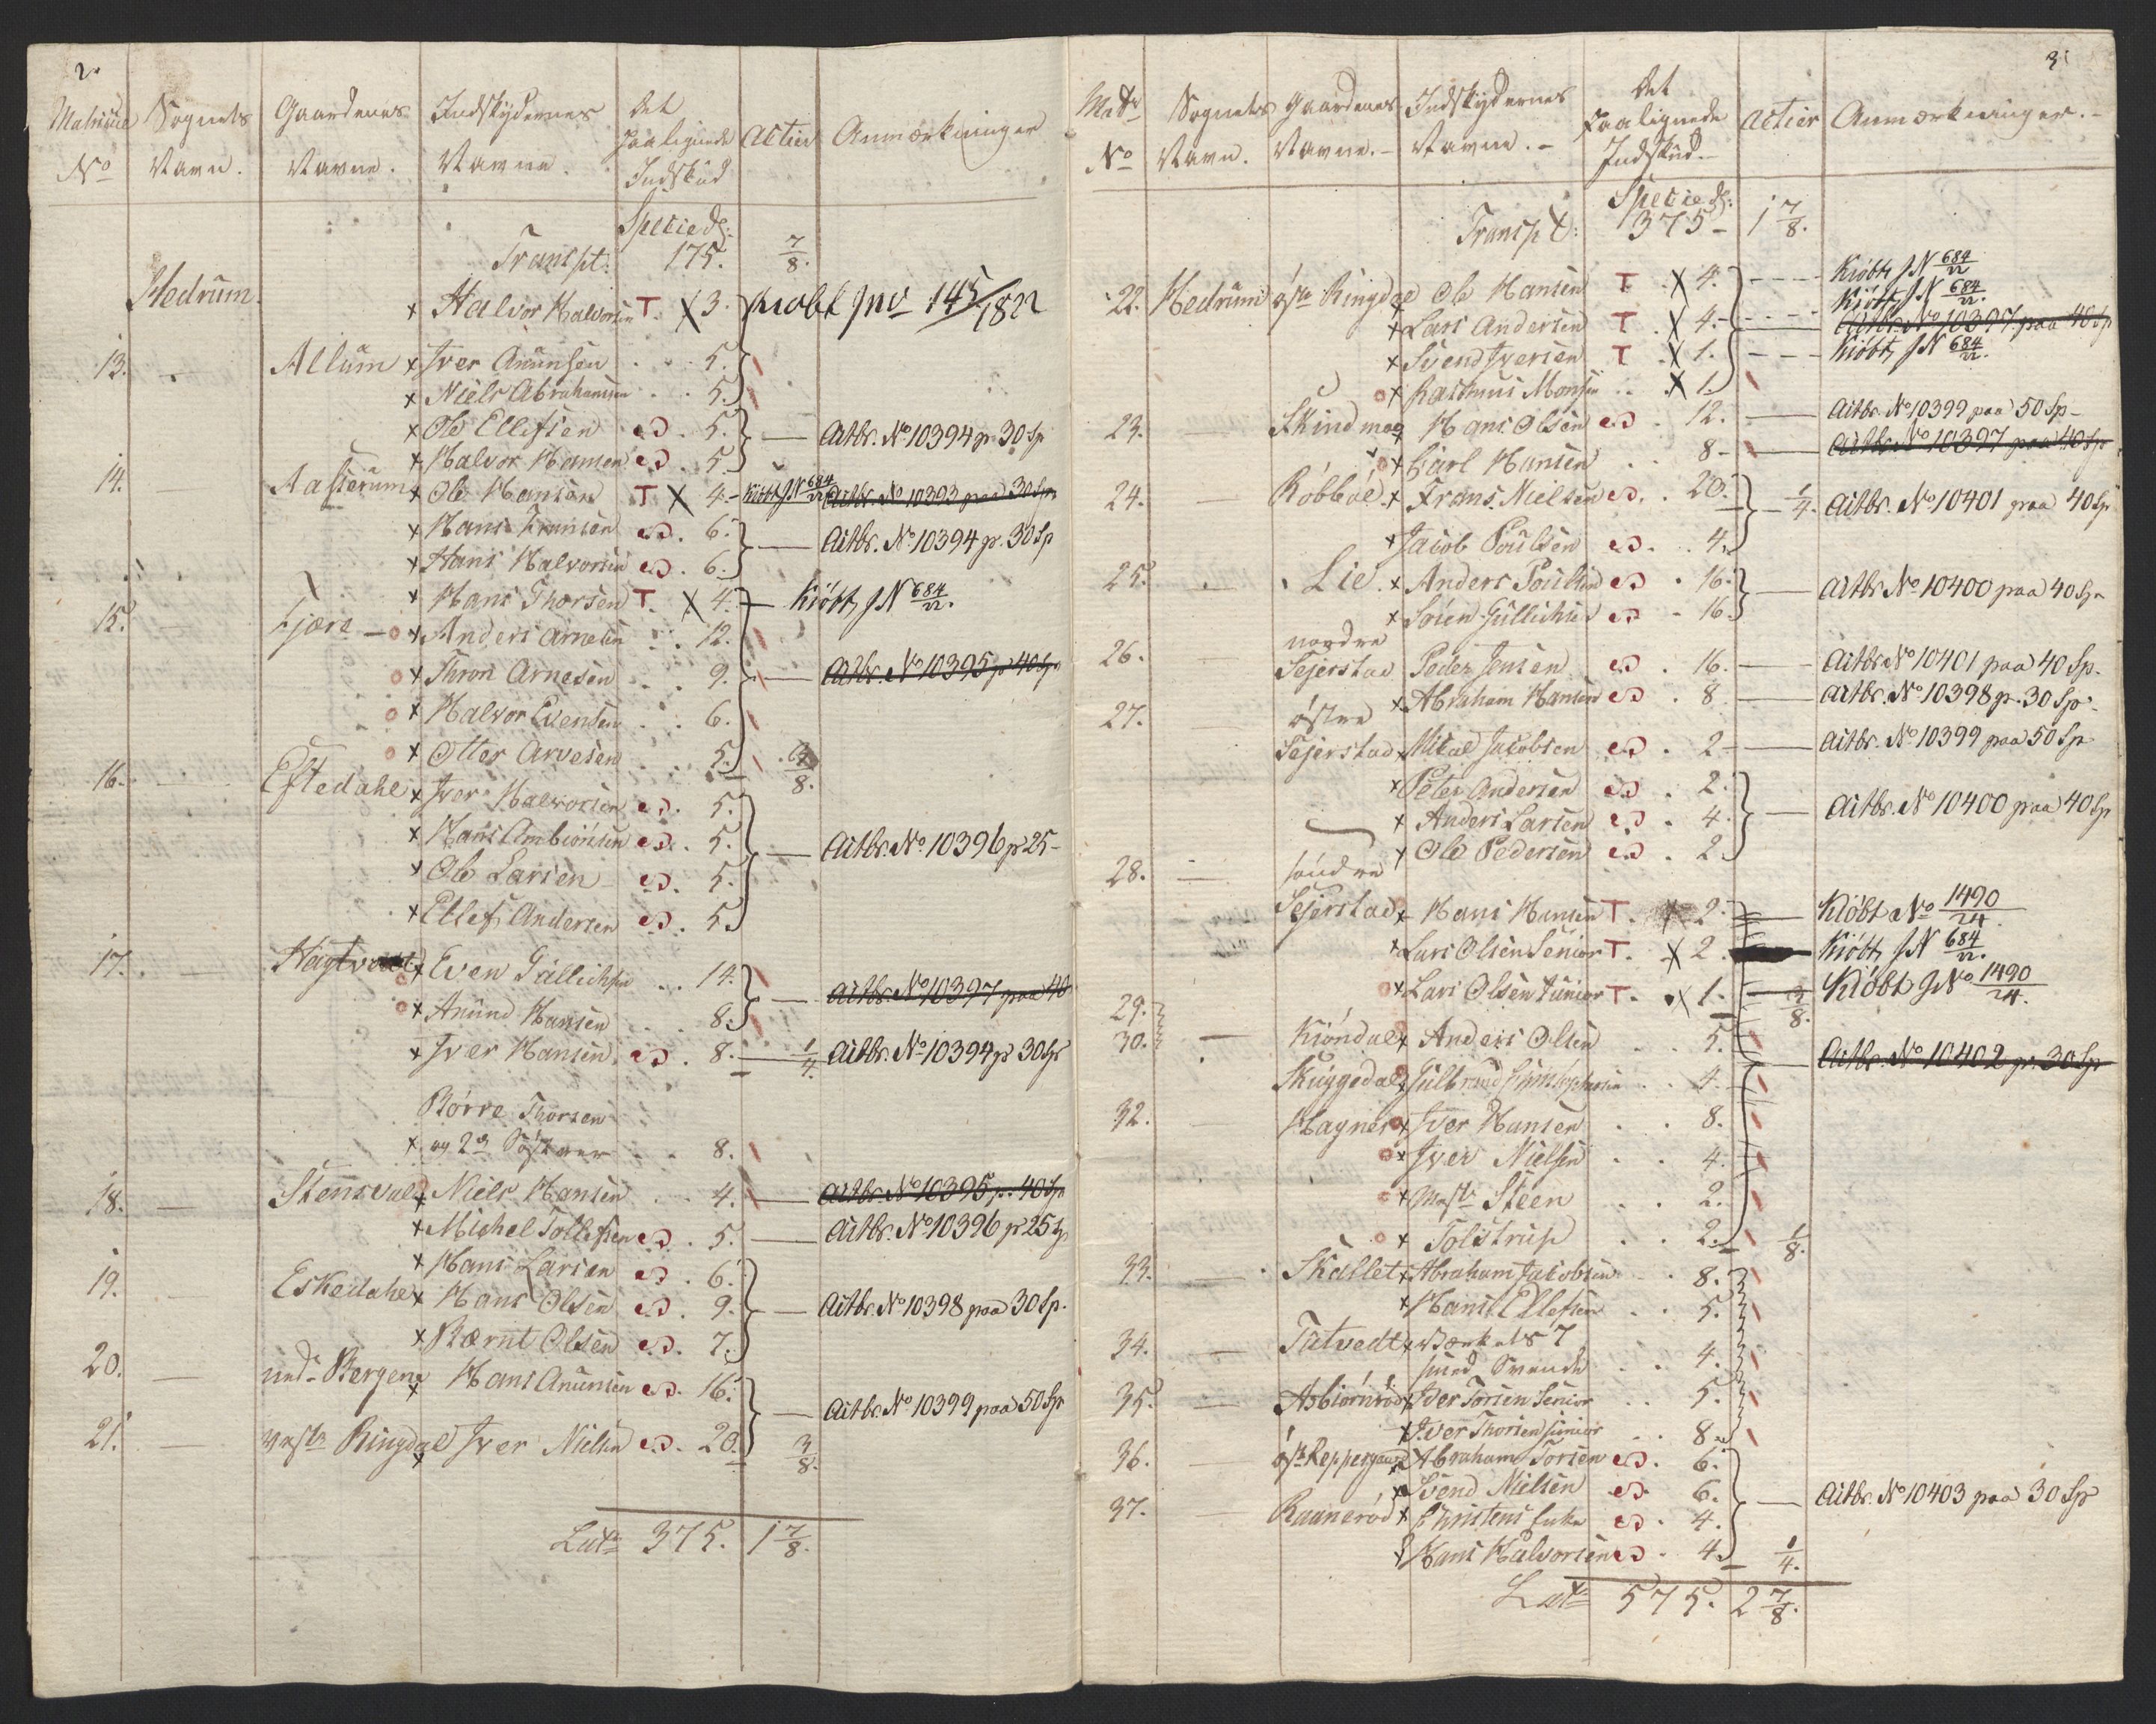 2.
Matricul No | Sognets Navn. | Gaardenes Navne. | Indskydernes Navne. | Det Paalignede Indskud | Actier | Anmærkninger
Specied:
Transpt: 175. 7/8.
Hedrum. x Halvor Halvorsen T. X 3. Kiøbt JNo 145/1822
13. Allum x Iver Anunsen 5.
x Niels Abrahamsen 5.
x Ole Ellefsen 5. — Actbr. No 10394 p. 30 Sp
x Halvor Hansen 5.
14. — Aasterum x Ole Hansen T X 4. Kiöbt JN 684/22 Actbr. No 10393 paa 30 Sp.
x Hans Fransen 6. — Actbr. No 10394 p. 30 Sp
x Hans Halvorsen 6.
x Hans Thorsen T. X 4. — Kiöbt JN 684/22.
15. — Fjære — o x Anders Arnesen 12.
o x Thron Arnesen 9. — Actbr. No 10395 p 40 Sp.
o x Halvor Evensen 6.
o x Otter Arvesen 5. 8.
16. — Eftedahl x Iver Halvorsen 5.
x Hans Ambiörnsen 5. — Actbr. No 10396 p 25 -
x Ole Larsen 5.
x Ellef Andersen 5.
17. — Hagtvedt x Even Gullichsen 14. — Actbr. No 10397 paa 40
o x Anund Hansen 8.
x Iver Hansen 8. — 1/4. Actbr. No 10394 p 30 Sp
Börre Thorsen
x og 2de Söstrer 8.
18. — Stensvale x Niels Hansen 4. — Actbr. No 10395 p. 40 Sp
x Michel Tollefsen 5. — Actbr. No 10396 p 25 Sp
x Hans Larsen 6.
19. — Eskedahl x Hans Olsen 9. — Actbr. No 10398 paa 30 Sp.
x Bernt Olsen 7.
20. — ned: Bergene x Hans Anunsen 16.
— Actbr. No 10399 paa 50 Sp
21. — vestr Ringdal x Iver Nielsen 20. 3/8.
Lat: 375. 1 7/8.
3
Matr No | Sognets Navn. | Gaardenes Navne. | Indskydernes Navne. | Det Paalignede Indskud. | Actier | Anmærkninger.
Specied:
Transpt: 375 - 1 7/8.
22. Hedrum östr Ringdal x Ole Hansen T X 4. Kiöbt JN 684/22
x Lars Andersen T. X 4. Kiöbt JN 684/22.
Actbr. No 10397 paa 40 Sp
x Svend Iversen T X 1. Kiöbt JN 684/22.
o x Rasmus Monsen X 1.
23. — Skindmog x Hans Olsen 12. — Actbr. No 10399 paa 50 Sp -
o x Carl Hansen 8 - — Actbr. No 10397 paa 40 Sp
24. — Röbböl x Frans Nielsen 20. 1/4. Actbr. No 10401 paa 40 Sp
x Jacob Poulsen 4.
25. Lie x Anders Poulsen 16. — Actbr No 10400 paa 40 Sp
x Sören Gullichsen 16.
26. — nordre
Sejerstad Peder Jensen 16. — Actbr No 10401 paa 40 Sp.
x Abraham Hansen 8 — Actbr. No 10398 p. 30 Sp.
27. — östre
Sejerstad x Mikal Jacobsen 2 - — Actbr. No 10399 paa 50 Sp
x Peter Andersen 2.
x Anders Larsen 4. — Actbr. No 10400 paa 40 Sp
x Ole Pedersen 2.
28. — söndre
Sejerstad x Hans Hansen T. X 2. Kiöbt No 1490/24.
x Lars Olsen Senior T. X 2. Kiöbt JN 684/22.
o x Lars Olsen Junior T. X 1. 3/8. Kiöbt JNo 1490/24.
29.
30. — Kiöndal x Anders Olsen 5.
— Actbr. No 10402 p. 30 Sp
Skuggedal x Gulbrand 4.
32. Hagnes o x Iver Hansen 8.
o x Iver Nielsen 4.
o x Steen 2.
o x Tolstrup 2. 1/8.
33. — Skallet x Abraham Jacobsen 8.
x Hans Ellefsen 5.
34. — Tutvedt x 7
4.
35. — Asbiörnröd x Iver Torsen Senior 5.
x Iver Thorsen Junior 8.
36. — östr Reppergaard x Abraham Torsen 6.
x Svend Nielsen 6. — Actbr. No 10403 paa 30 Sp
37. — Raaneröd x Christens Enke 4.
x Hans Halvorsen 4. 1/4.
Lat: 575. 2 7/8.